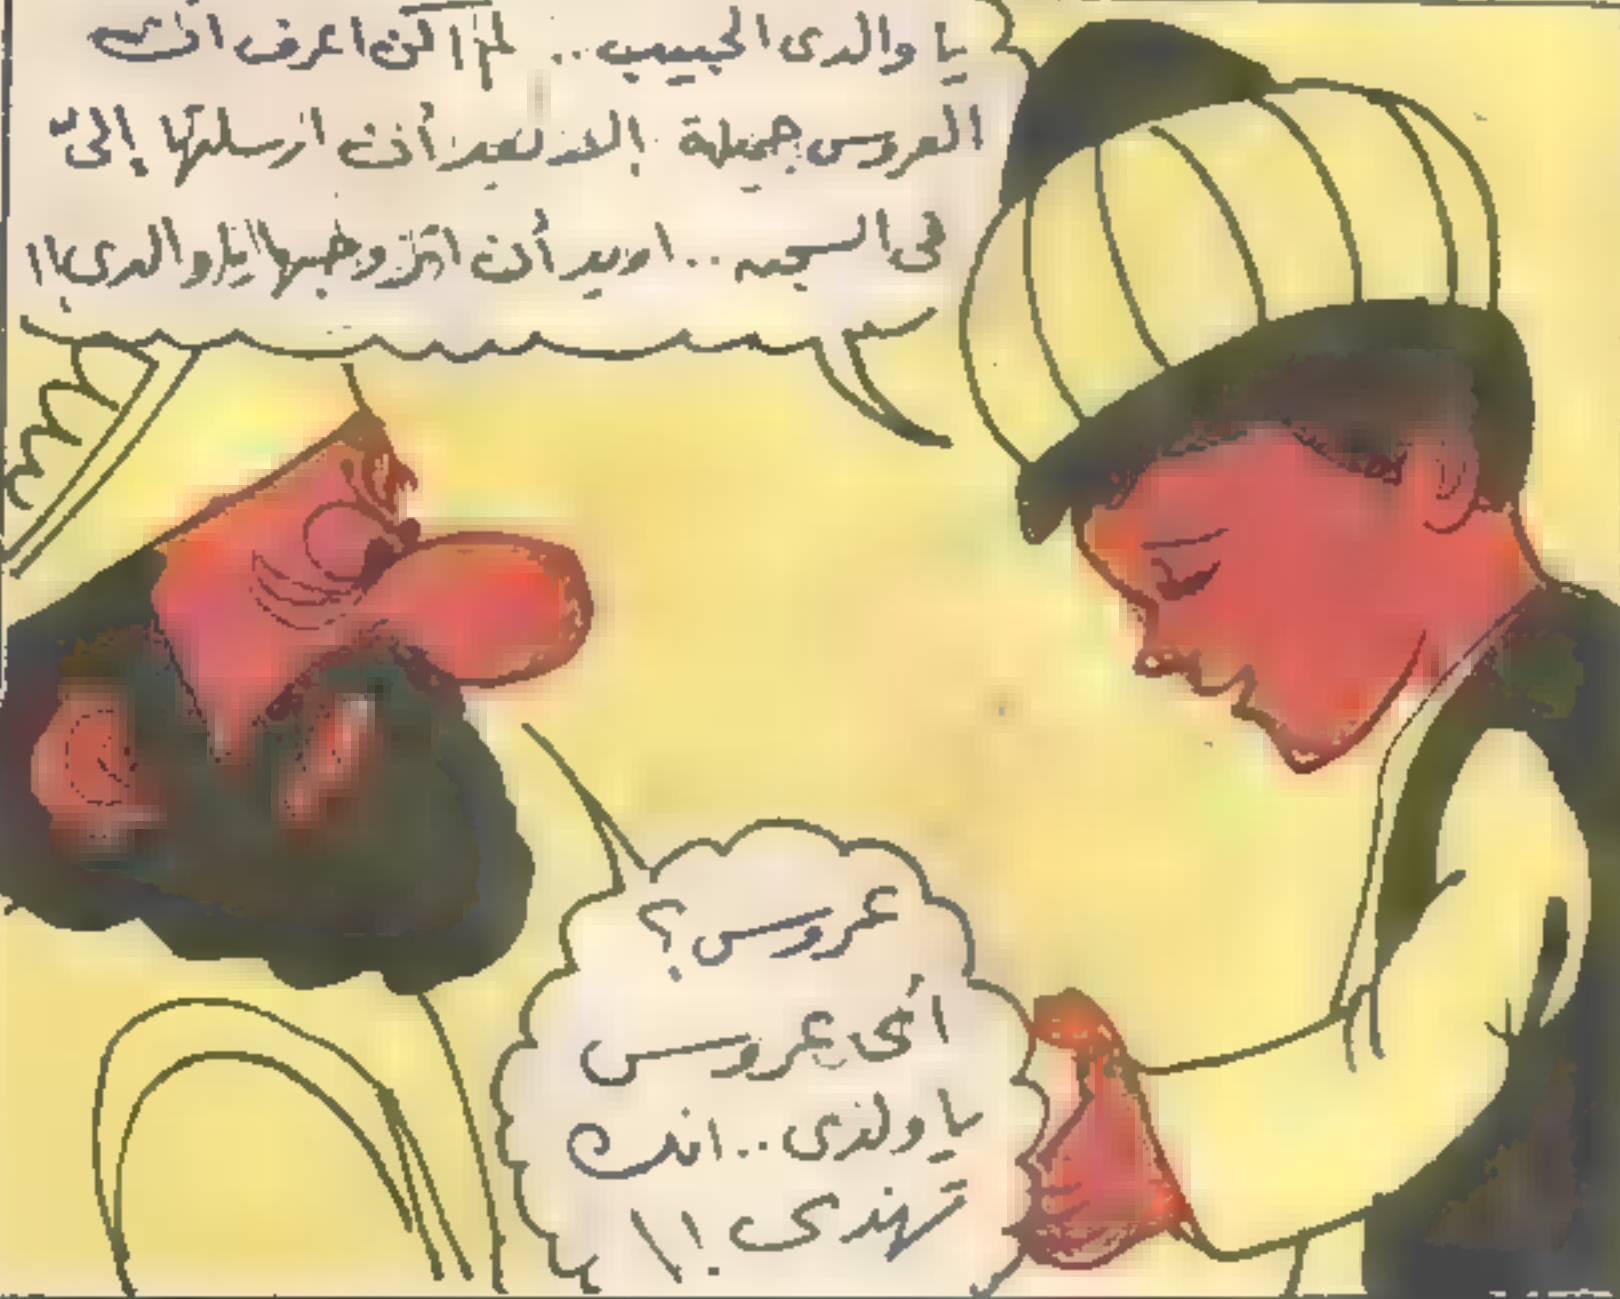 يا والدى الحبيب .. لم اكن اعرف أن
العروس جميلة إلا بعد أن ارسلتها إلىّ
فى السجن .. اريد أن اتزوجها يا والدى !!
عروس ؟
أى عروس
يا ولدى .. انك
تهذى !!